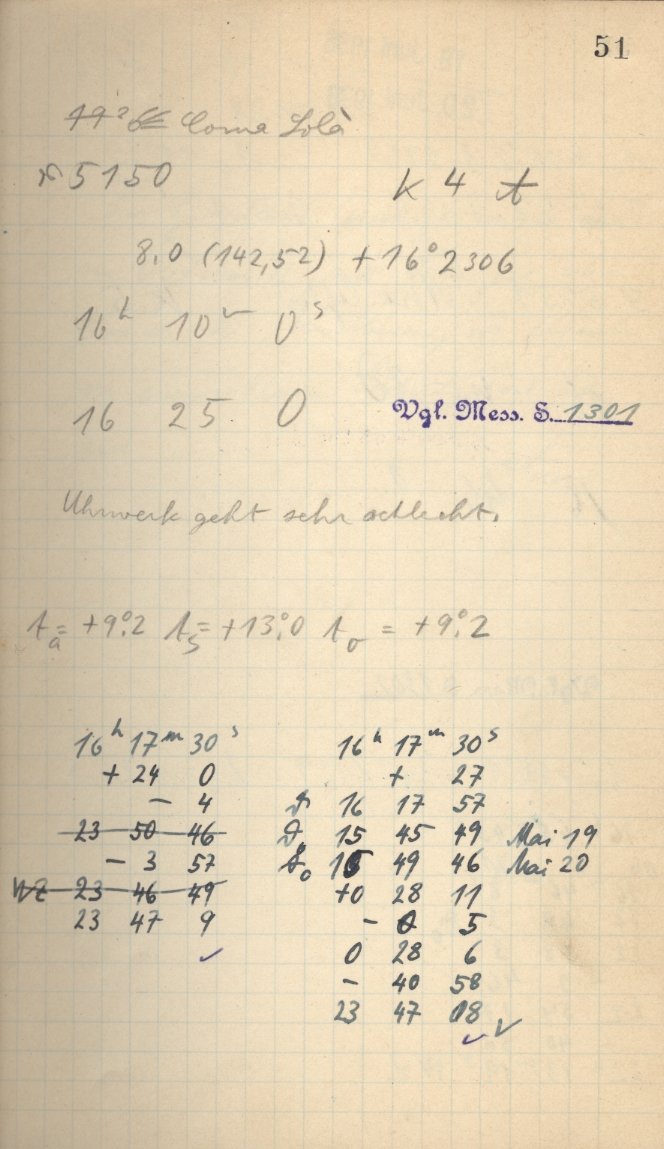 51
Coma Lolà
5150 K 4 t
8,0 (142,52) +16° 2306
16h 10m 0s
16 25 0 Vgl. Mess. S. 1301
Uhrwerk geht sehr schlecht.
ta = +9°,2 ts = +13°,0 to = +9°,2
16h 17m 30s
+ 24 0
- 4
23 50 46
- 3 57
WZ 23 46 49
23 47 9
16h 17m 30s
+ 27
16 17 57
15 45 49 Mai 19
15 49 46 Mai 20
+0 28 11
- 0 5
0 28 6
- 40 58
23 47 08